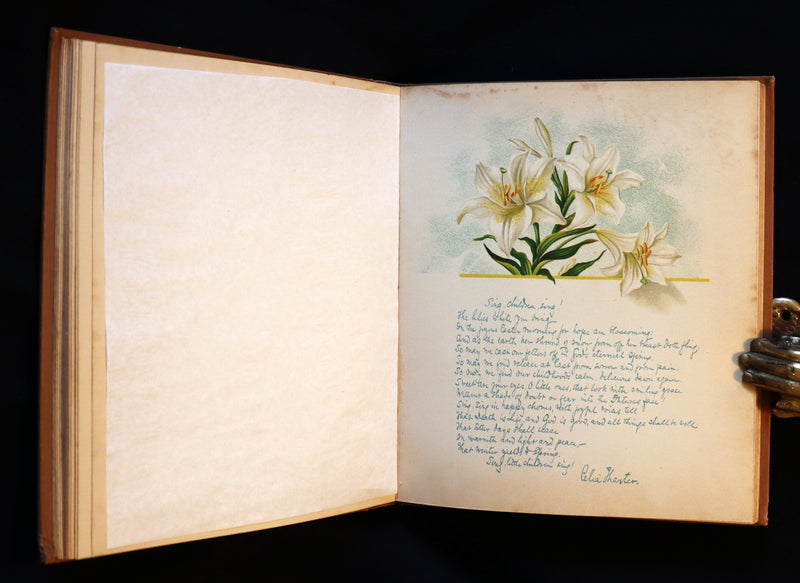 Sing, children, sing!
The lilies white you bring
In the joyous Easter morning for hope are blossoming;
And as the earth her shroud of snow from off her breast doth fling
So may we cast our fetters off in God's eternal Spring.
So may we find release at last from sorrow and from pain.
So may we find our childhood's calm, delicious dawn again.
Sweet are your eyes, O little ones, that look with smiling grace
Without a shade of doubt or fear into the Future's face!
Sing, sing in happy chorus, with joyful voices tell
That Death is Life, and God is good, and all things shall be well.
That bitter days shall cease
In warmth and light and peace,—
That Winter yields to Spring.
Sing, little children, sing!
Celia Thaxter.